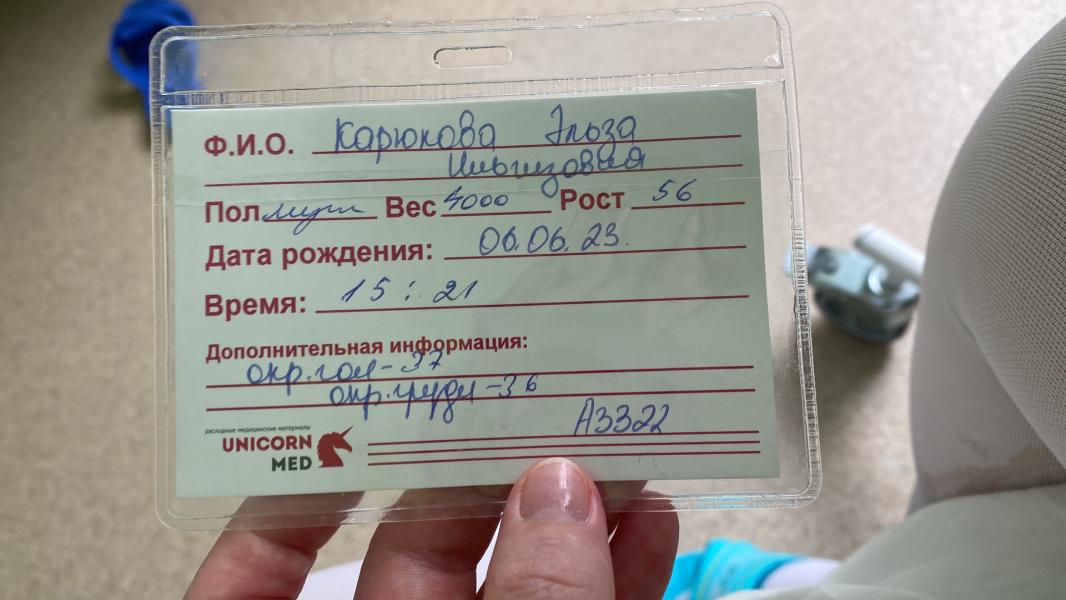 Ф.И.О. Карюкова Эльза
Ильгизовна
Пол муж Вес 4000 Рост 56
Дата рождения: 06.06.23.
Время: 15 : 21
Дополнительная информация:
окр. гол - 37
окр. груди - 36
A3322
расходные медицинские материалы
UNICORN
MED